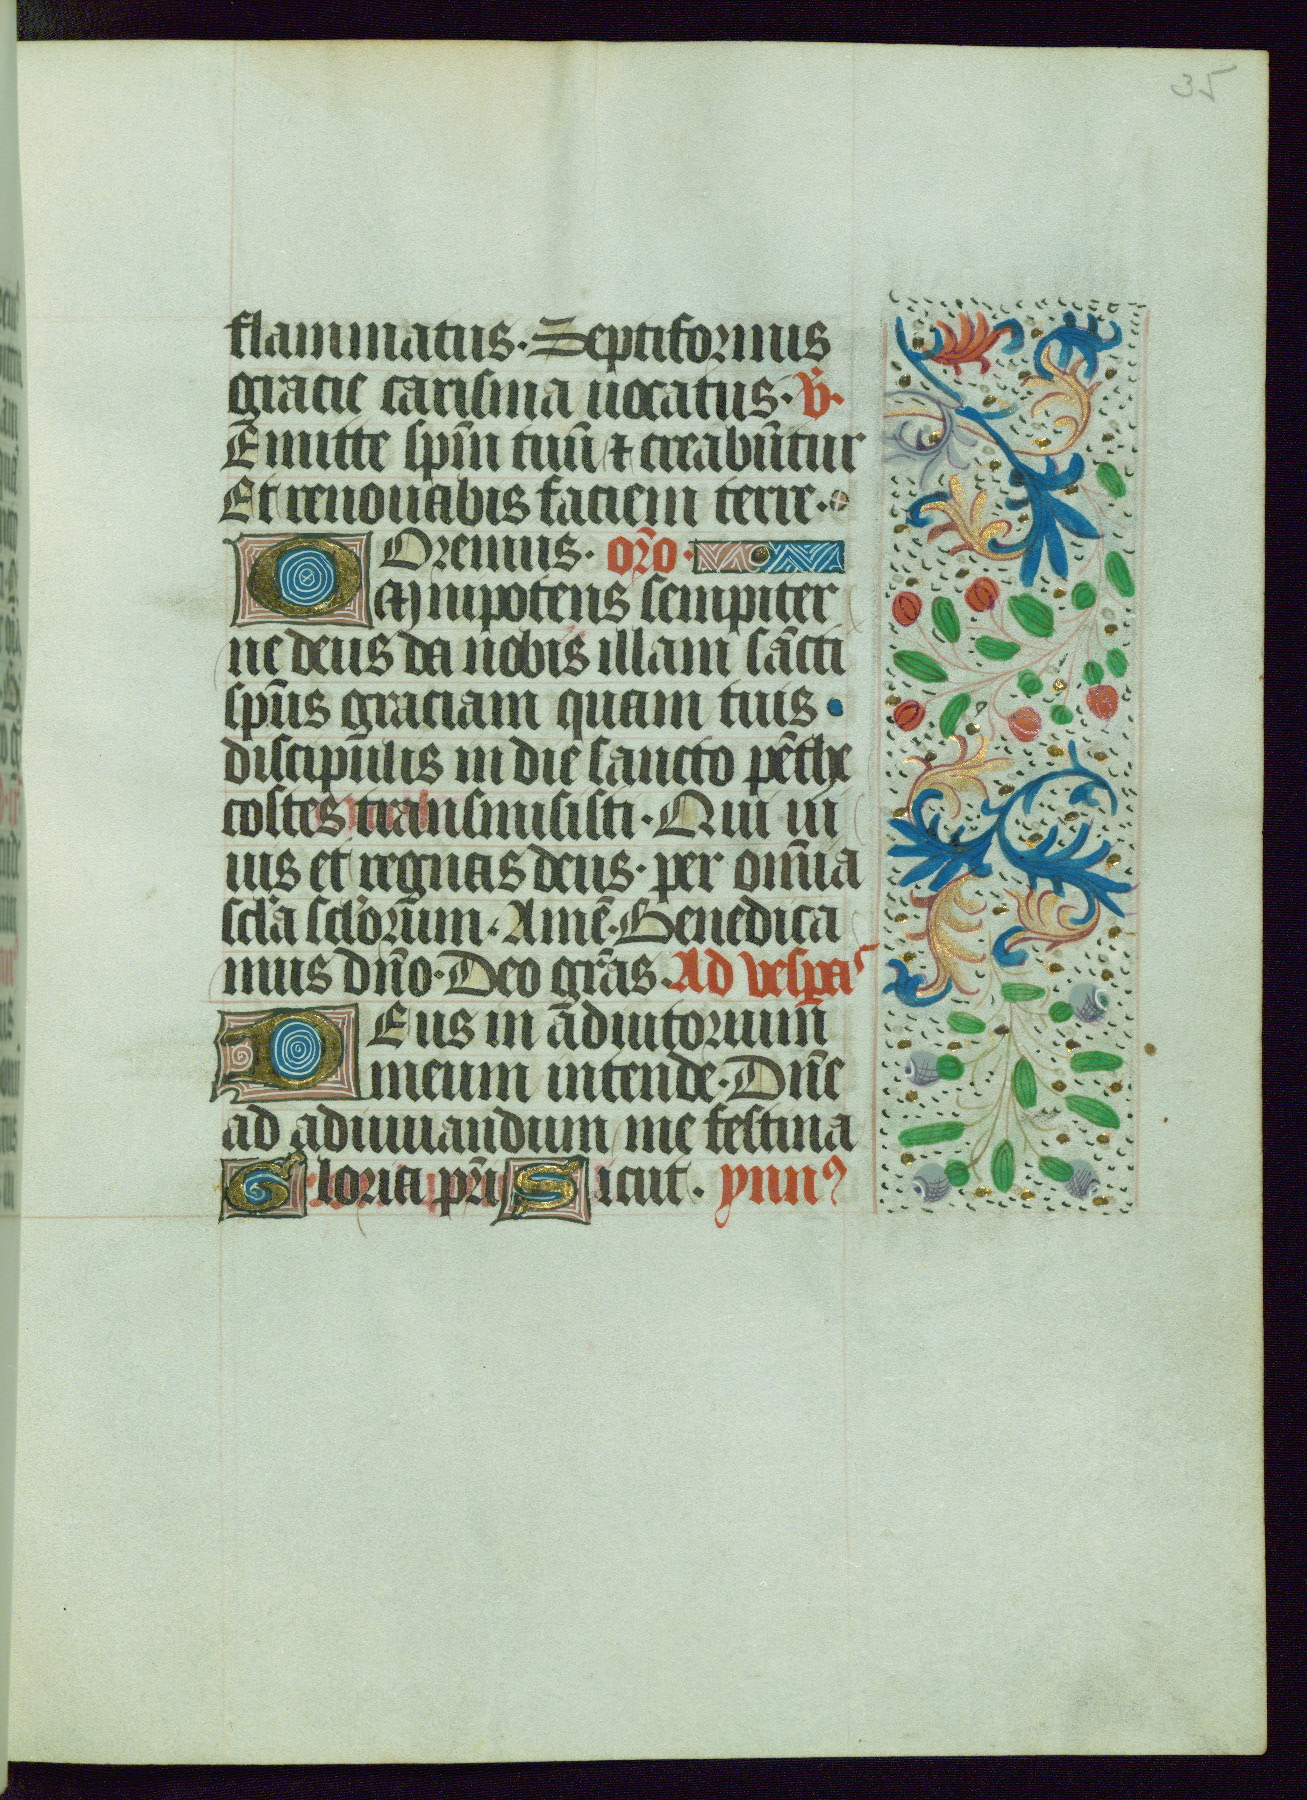 35
flammatus. Septiformis
gracie carisma uocatus. v̄.
Emitte sp̄m tuū ⁊ creabūntur
Et renouabis faciem terre.
Oremus. or̄o.
Omnipotens sempiter
ne deus da nobis illam sācti
sp̄us graciam quam tuis
discipulis in die sancto pēthe
costes transmisisti. Qui ui
uis et regnas deus. per om̄ia
scl̄a scl̄orum. Amē. Benedica
mus dn̄o. Deo gr̄as. Ad vespaꝰ
Deus in adiutorium
meum intende. Dn̄e
ad adiuuandum me festina
Gloria pr̄i Sicut. ynnꝰ